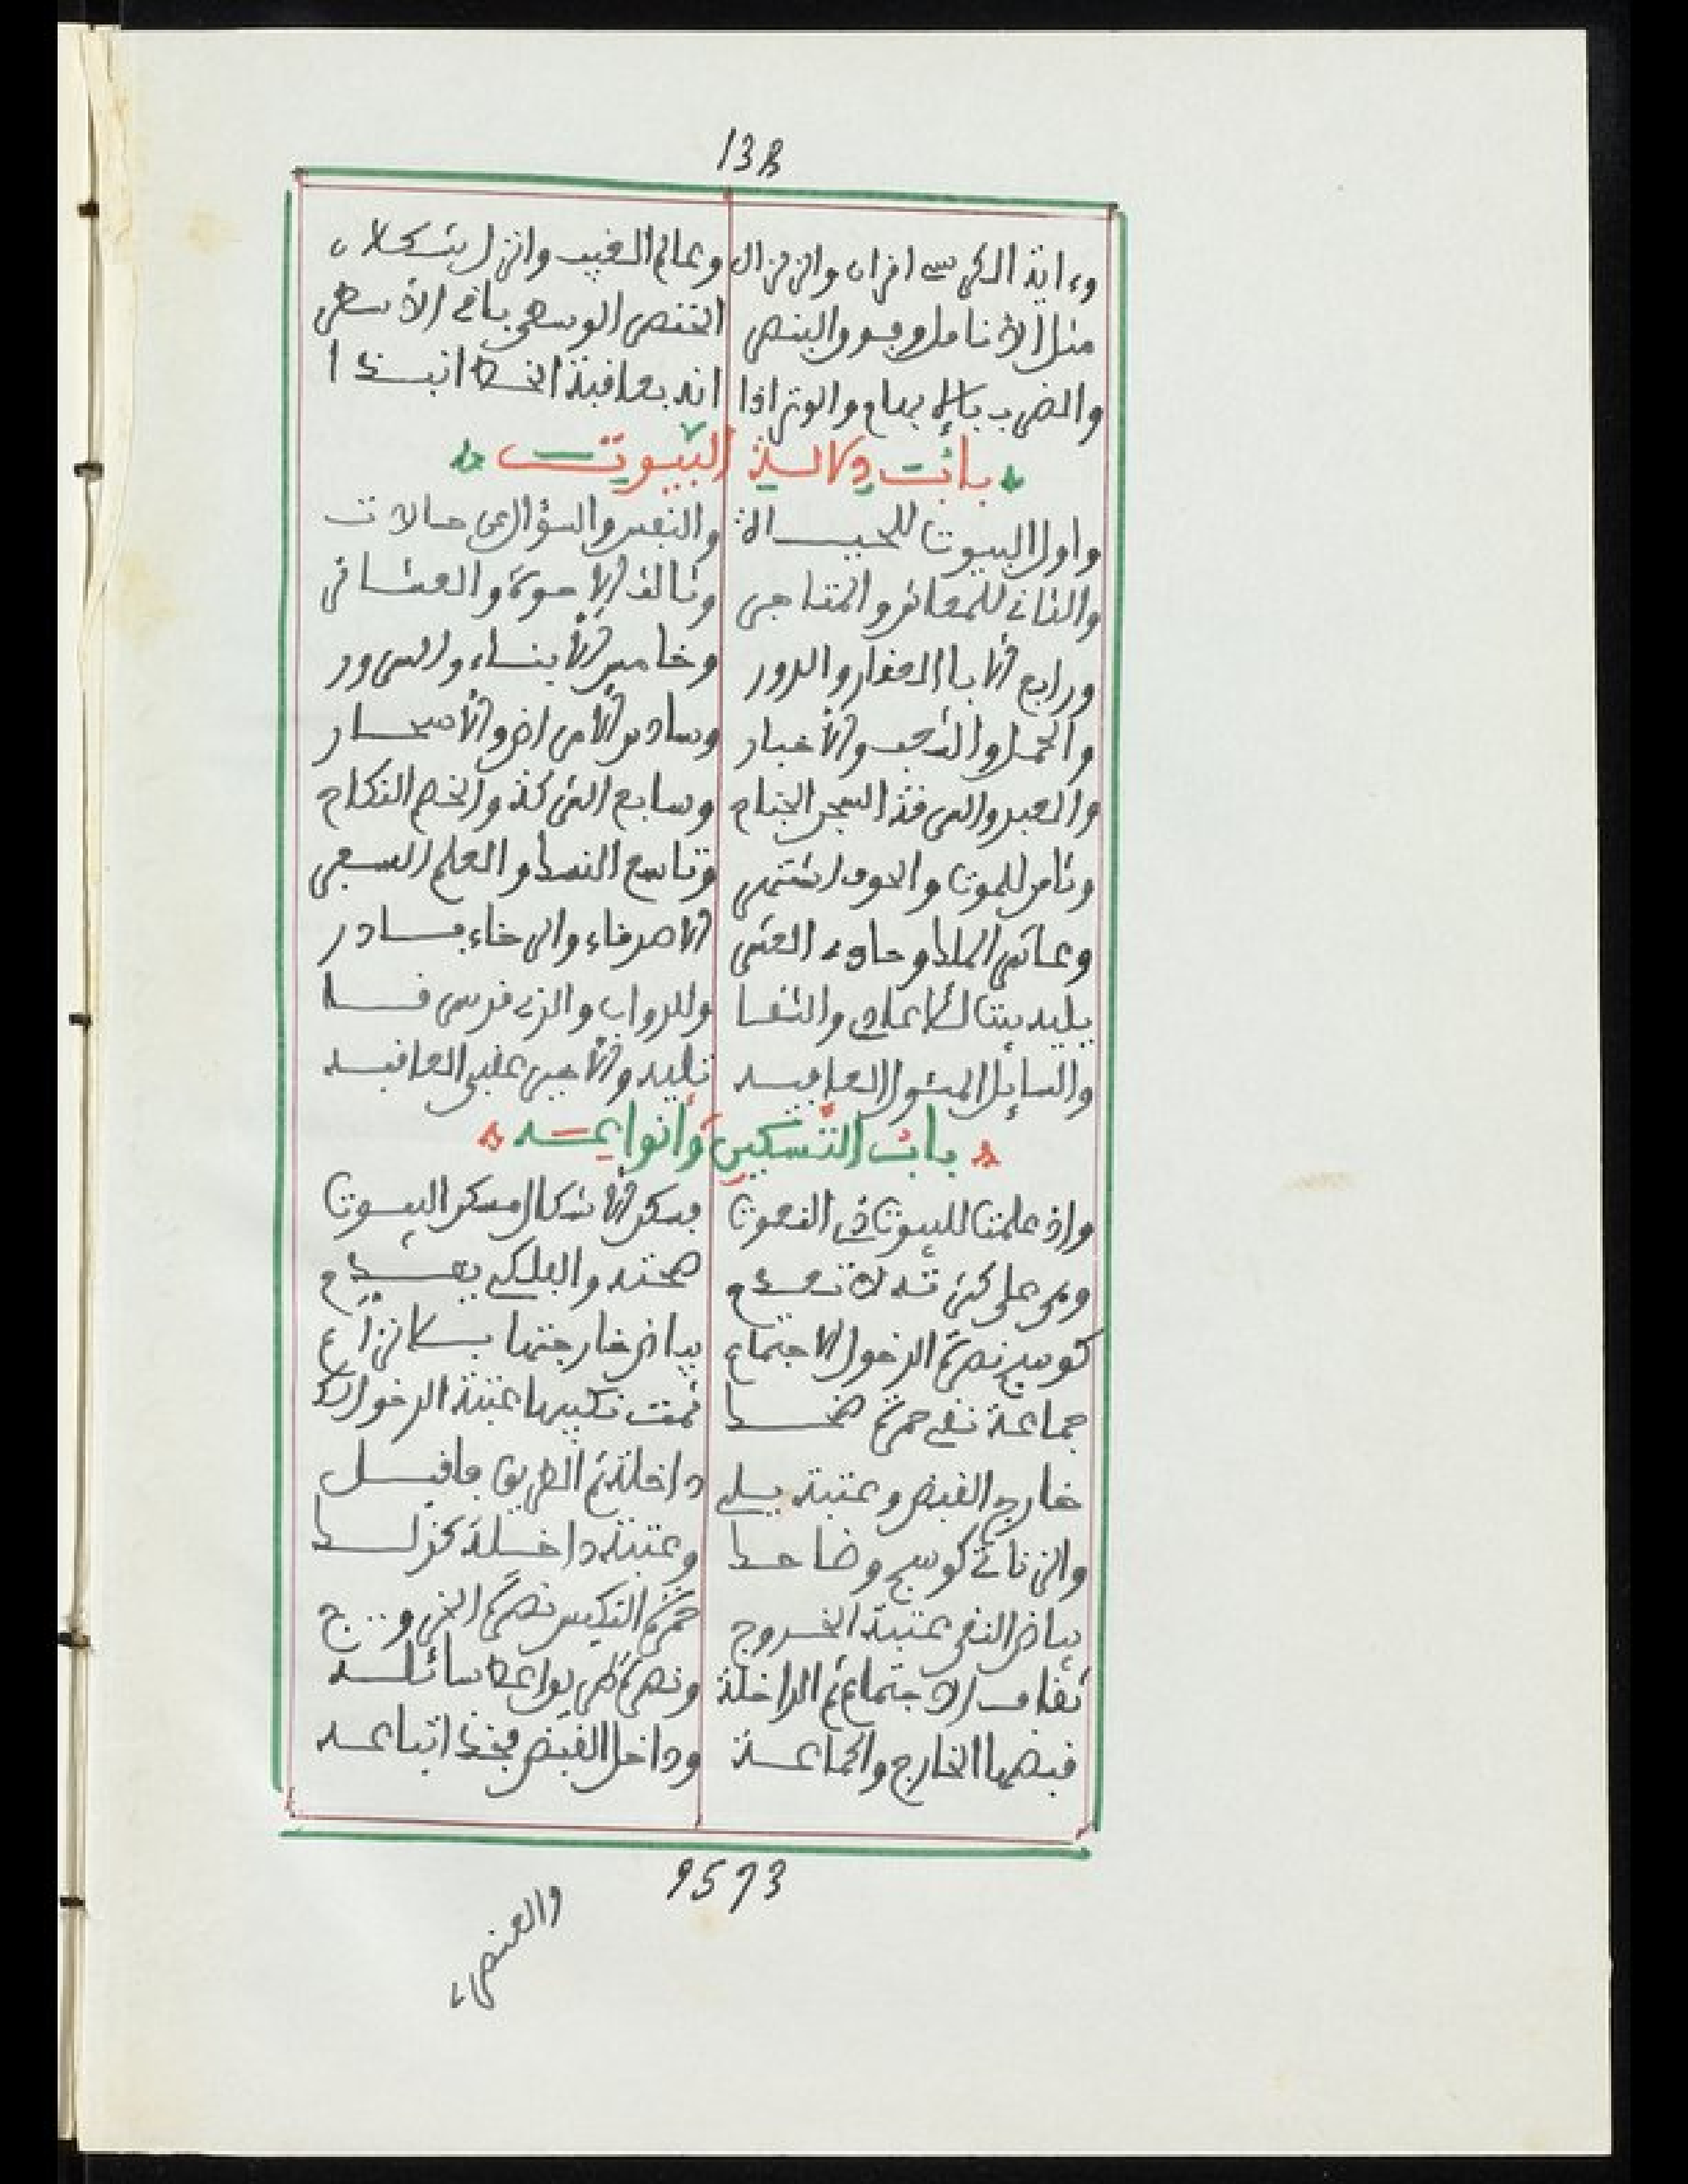 13B
واية الكرسي اقرأن والزلزال وعالم الغيب وانزل بشكلان
مثل الأنامل وهو والبنصر الخنصر الوسطى باقي الأسطر
والضرب بالإبهام والوتر اذا انه بعاقبة الخط انبذا
باب دلالة البيوت
واول البيوت للحياة والنفس والسؤال عن حالات
والثاني للمعاش والمتاجر وثالث الاخوة والعشائر
ورابع الأبا العقار والدور وخامس الأبناء والسرور
والحمل والتعجب والأخبار وسادس الأمراض والأسحار
والعبيد والسرقة السجن الجناح وسابع الشركة والخصم النكاح
وثامن للموت والخوف اشتهر وتاسع النسك والعلم السفر
وعاشر الملك وحاوي العشر الأصدقاء والرخاء بادر
يليه بيت الأعادي والشقا وللدواب والذي فرس
والسايل المسئول العاقبه تليه والأخير عقبى العاقبه
باب التسكين وانواعه
واذ علمت للبيوت في النعوت فسكن الأشكال مسكن البيوت
وهي على كثرته لا تعدم صحته والفلكي يقدم
كوسج نصرة الدخول الاجتماع بياض خارجتها
جماعة نقي حمرة ضحك ثمت نكيسها عتبة الدخول لك
خارج القبض وعتبة يلي داخلة ثم الطريق ما قبل
والزناتي كوسج وضاحك وعتبة داخلة كذلك
بياض النقي عتبة الخروج حمرة التكيس نصرة الخروج
ثقاف الاجتماع ثم الداخلة ونصرة طريق
قبضها الخارج والجماعة وداخل القبض فخذ اتباعه
9573
والعنصر